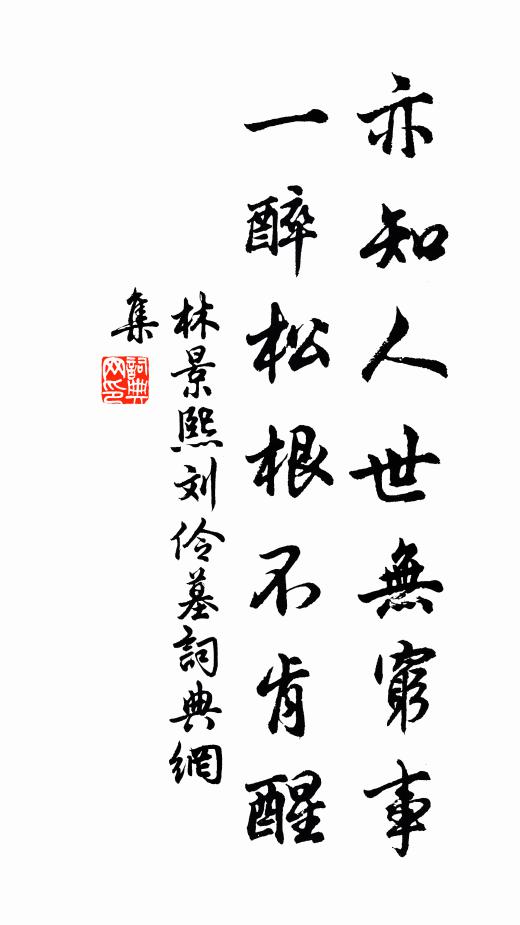 亦知人世無窮事
一醉松根不肯醒
林景熙刘伶墓詞典網
集
詞典网印